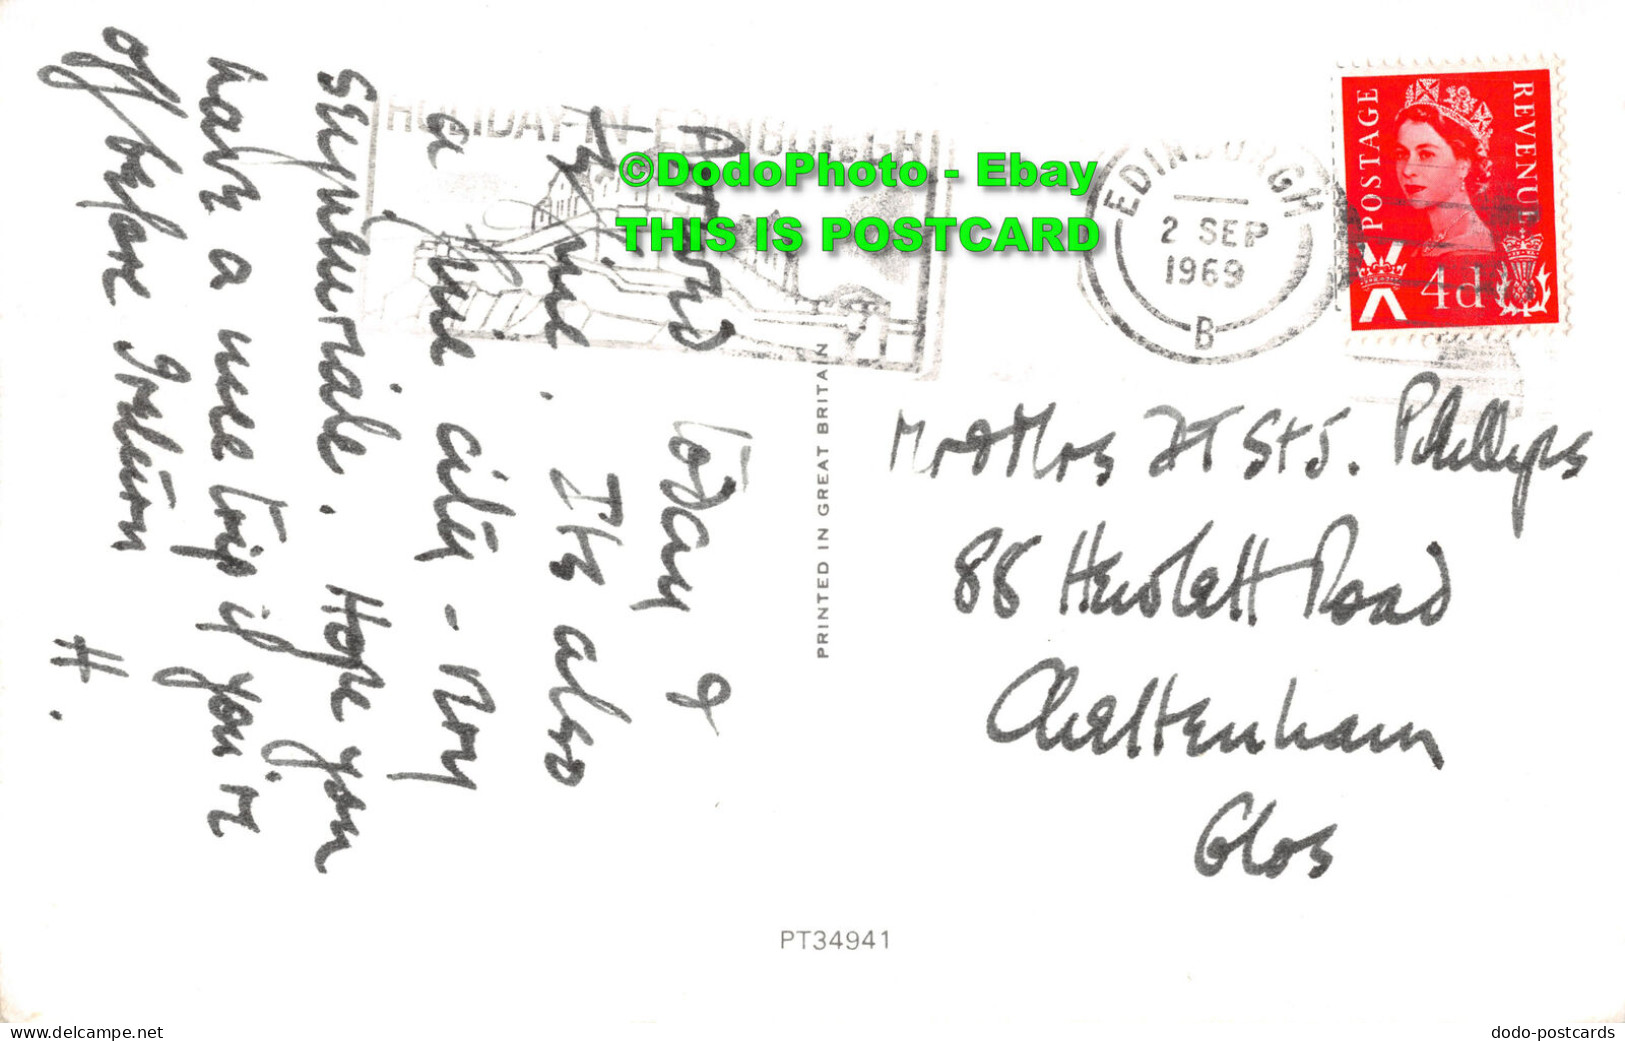 Arrived today &
its fine. Its also
a fine city - very
Hope you
have a nice trip if you're
off before I return
H.
HOLIDAY IN EDINBURGH
©DodoPhoto - Ebay
THIS IS POSTCARD
EDINBURGH
2 SEP
1969
B
POSTAGE
REVENUE
4d
PRINTED IN GREAT BRITAIN
Mr & Mrs St J. Phillips
88 Hewlett Road
Cheltenham
Glos
PT34941
delcampe.net
dodo-postcards